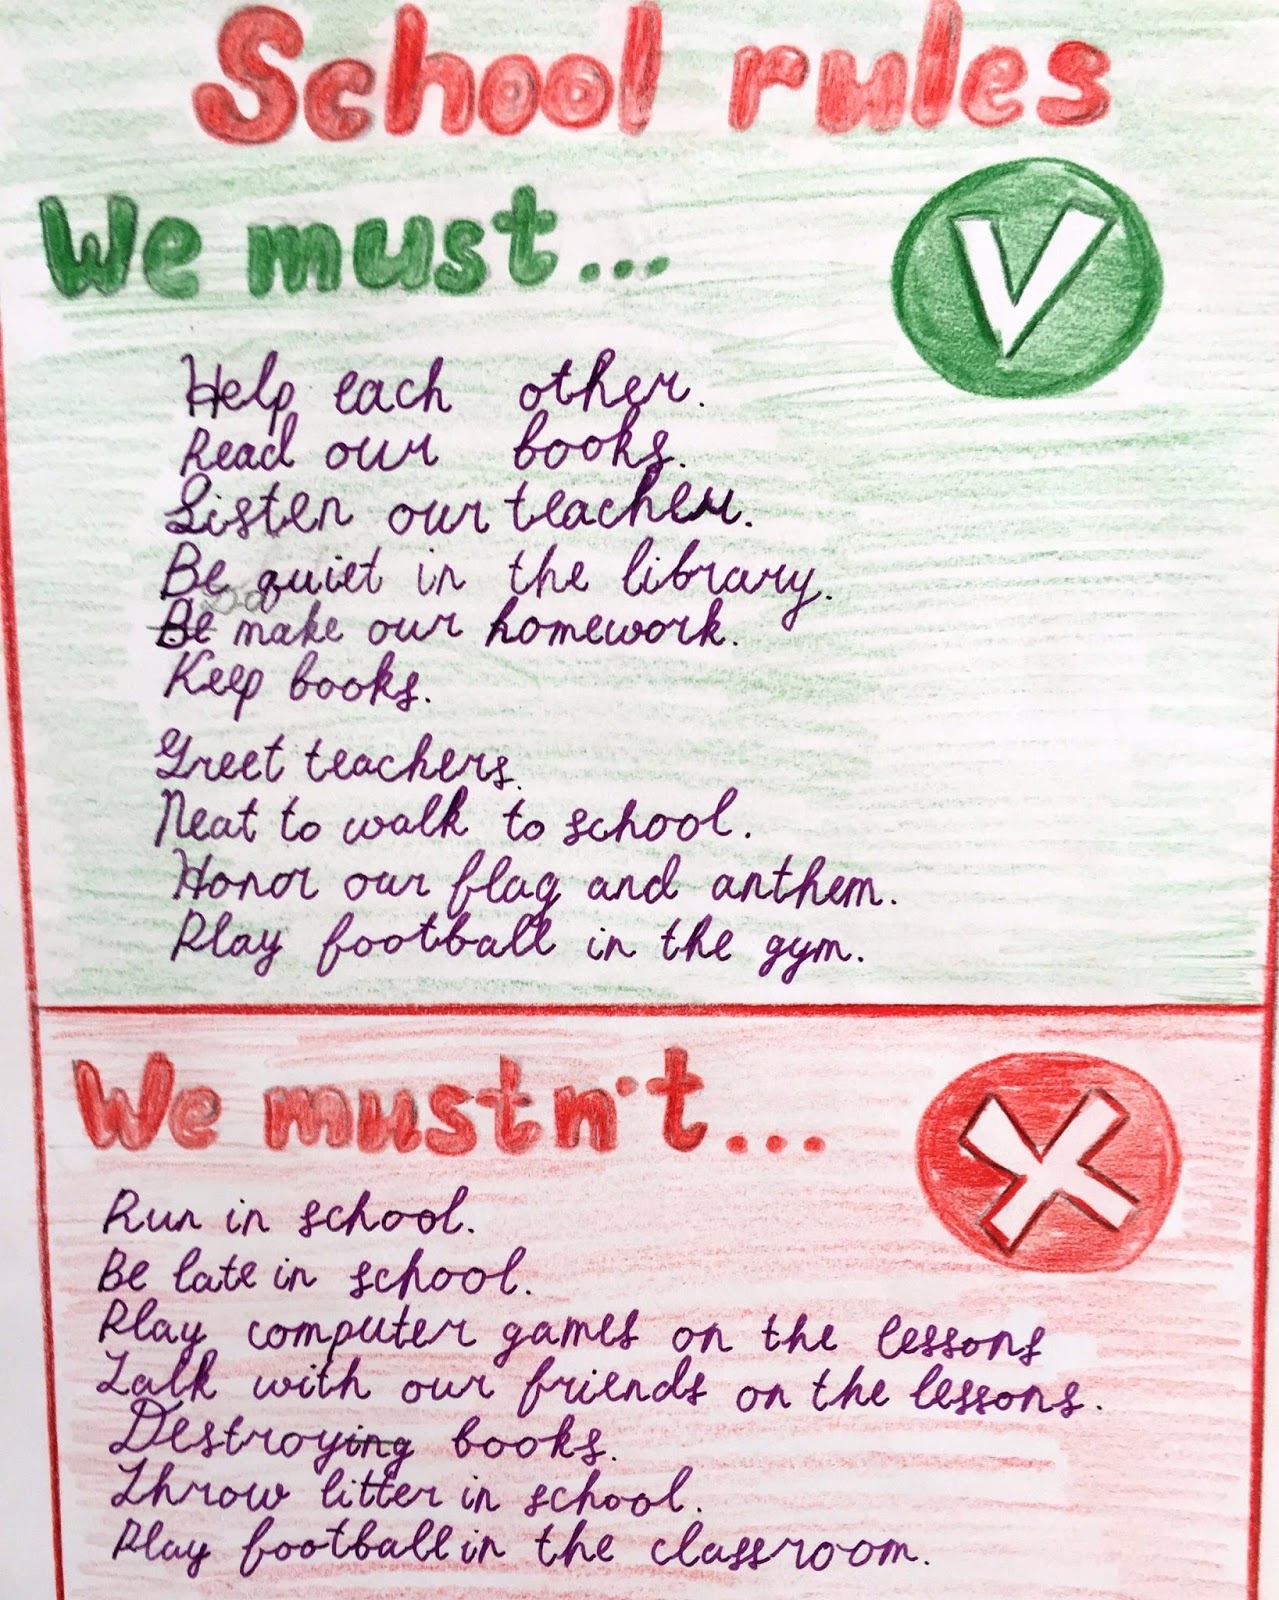 School rules
We must...
V
Help each other.
Read our books.
Listen our teacher.
Be quiet in the library.
Do
Be make our homework.
Keep books.
Greet teachers.
Neat to walk to school.
Honor our flag and anthem.
Play football in the gym.
We mustn't...
Run in school.
Be late in school.
Play computer games on the lessons
Talk with our friends on the lessons.
Destroying books.
Throw litter in school.
Play football in the classroom.